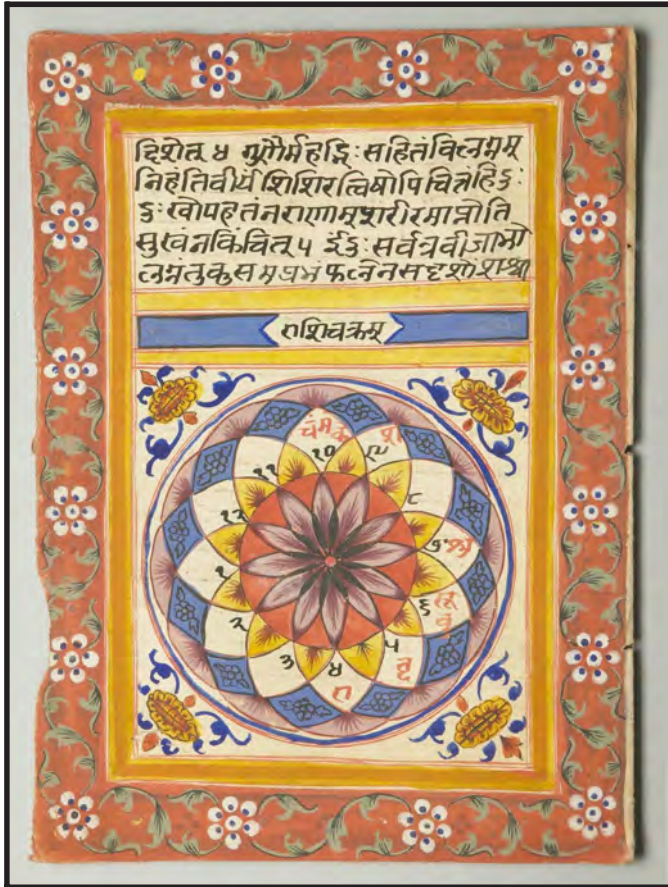 दिशेत् ४ गुणैर्महद्भिः सहितं विलग्नम्
निहंति वीर्यं शिशिरत्विषोपि चित्रं हि
दुःखोपहतं नराणाम् शरीरमाप्नोति
सुखं न किंचित् ५ इंदुः सर्वत्र वीजाभो
लग्नं तु कुसमप्रभं फलेन सदृशों शश्चा
राशिचक्रम्
चं मं के
श
१०
९
११
८
१२
७
१
६
२
५
बृ
३
४
रा